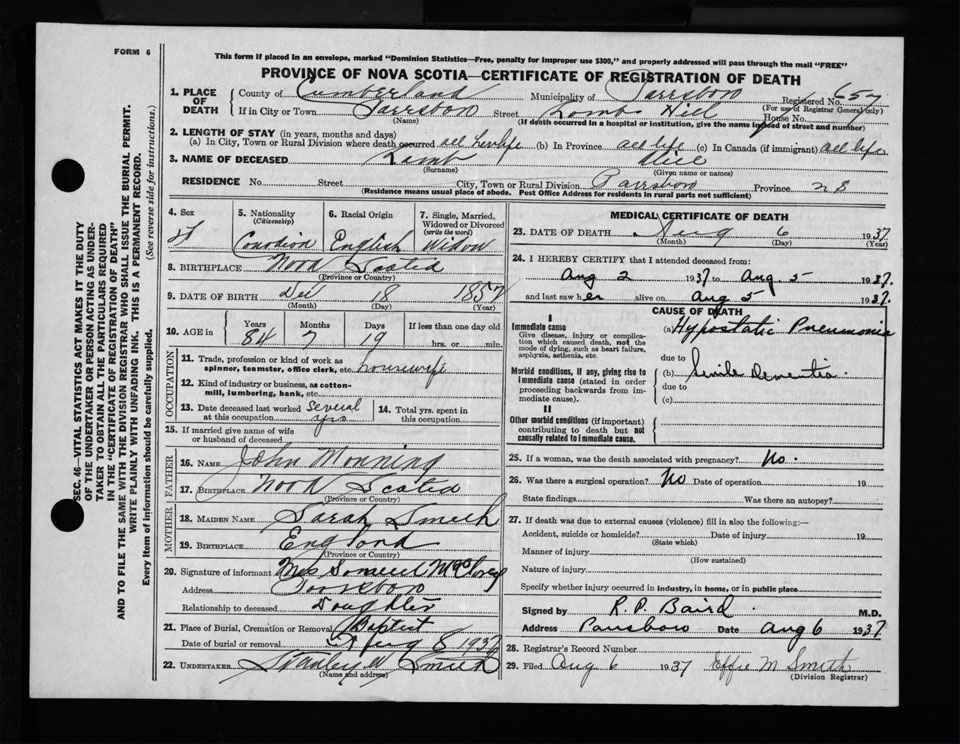 FORM 6
This form if placed in an envelope, marked "Dominion Statistics—Free, penalty for improper use $300," and properly addressed will pass through the mail "FREE"
PROVINCE OF NOVA SCOTIA—CERTIFICATE OF REGISTRATION OF DEATH
1. PLACE OF DEATH County of Cumberland Municipality of Parrsboro Registered No. 657
(For use of Registrar General only)
If in City or Town Parrsboro Street Hill House No.
(Name) (If death occurred in a hospital or institution, give the name instead of street and number)
2. LENGTH OF STAY (in years, months and days)
(a) In City, Town or Rural Division where death occurred all her life (b) In Province all life (c) In Canada (if immigrant) all life
3. NAME OF DECEASED Lamb Alice
(Surname) (Given name or names)
RESIDENCE No. Street City, Town or Rural Division Parrsboro Province N S
(Residence means usual place of abode. Post Office Address for residents in rural parts not sufficient)
4. Sex 5. Nationality (Citizenship) 6. Racial Origin 7. Single, Married, Widowed or Divorced (write the word)
F Canadian English Widow
8. BIRTHPLACE Nova Scotia
(Province or Country)
9. DATE OF BIRTH Dec 18 1857
(Month) (Day) (Year)
10. AGE in Years Months Days If less than one day old
84 7 19 hrs. or min.
OCCUPATION
11. Trade, profession or kind of work as spinner, teamster, office clerk, etc. housewife
12. Kind of industry or business, as cotton-mill, lumbering, bank, etc.
13. Date deceased last worked at this occupation several yrs
14. Total yrs. spent in this occupation
15. If married give name of wife or husband of deceased
FATHER
16. NAME John Monning
17. BIRTHPLACE Nova Scotia
(Province or Country)
MOTHER
18. MAIDEN NAME Sarah Smith
19. BIRTHPLACE England
(Province or Country)
20. Signature of informant Mrs Samuel
Address Parrsboro
Relationship to deceased Daughter
21. Place of Burial, Cremation or Removal Baptist
Date of burial or removal Aug 8 1937
22. UNDERTAKER Stanley W Smith
(Name and address)
MEDICAL CERTIFICATE OF DEATH
23. DATE OF DEATH Aug 6 1937
(Month) (Day) (Year)
24. I HEREBY CERTIFY that I attended deceased from:
Aug 2 1937 to Aug 5 1937
and last saw her alive on Aug 5 1937.
CAUSE OF DEATH
I
Immediate cause
Give disease, injury or complication which caused death, not the mode of dying, such as heart failure, asphyxia, asthenia, etc.
(a) Hypostatic Pneumonia
due to
Morbid conditions, if any, giving rise to immediate cause (stated in order proceeding backwards from immediate cause).
(b) Senile Dementia.
due to
(c)
II
Other morbid conditions (if important) contributing to death but not causally related to immediate cause.
25. If a woman, was the death associated with pregnancy? No.
26. Was there a surgical operation? No Date of operation 19
State findings Was there an autopsy?
27. If death was due to external causes (violence) fill in also the following:—
Accident, suicide or homicide? Date of injury 19
(State which)
Manner of injury
(How sustained)
Nature of injury
Specify whether injury occurred in industry, in home, or in public place
Signed by R.P. Baird M.D.
Address Parrsboro Date Aug 6 1937
28. Registrar's Record Number
29. Filed Aug 6 1937 Effie M Smith
(Division Registrar)
SEC. 46—VITAL STATISTICS ACT MAKES IT THE DUTY
OF THE UNDERTAKER OR PERSON ACTING AS UNDER-
TAKER TO OBTAIN ALL THE PARTICULARS REQUIRED
IN THE "CERTIFICATE OF REGISTRATION OF DEATH"
AND TO FILE THE SAME WITH THE DIVISION REGISTRAR WHO SHALL ISSUE THE BURIAL PERMIT.
WRITE PLAINLY WITH UNFADING INK. THIS IS A PERMANENT RECORD.
Every item of information should be carefully supplied. (See reverse side for instructions.)